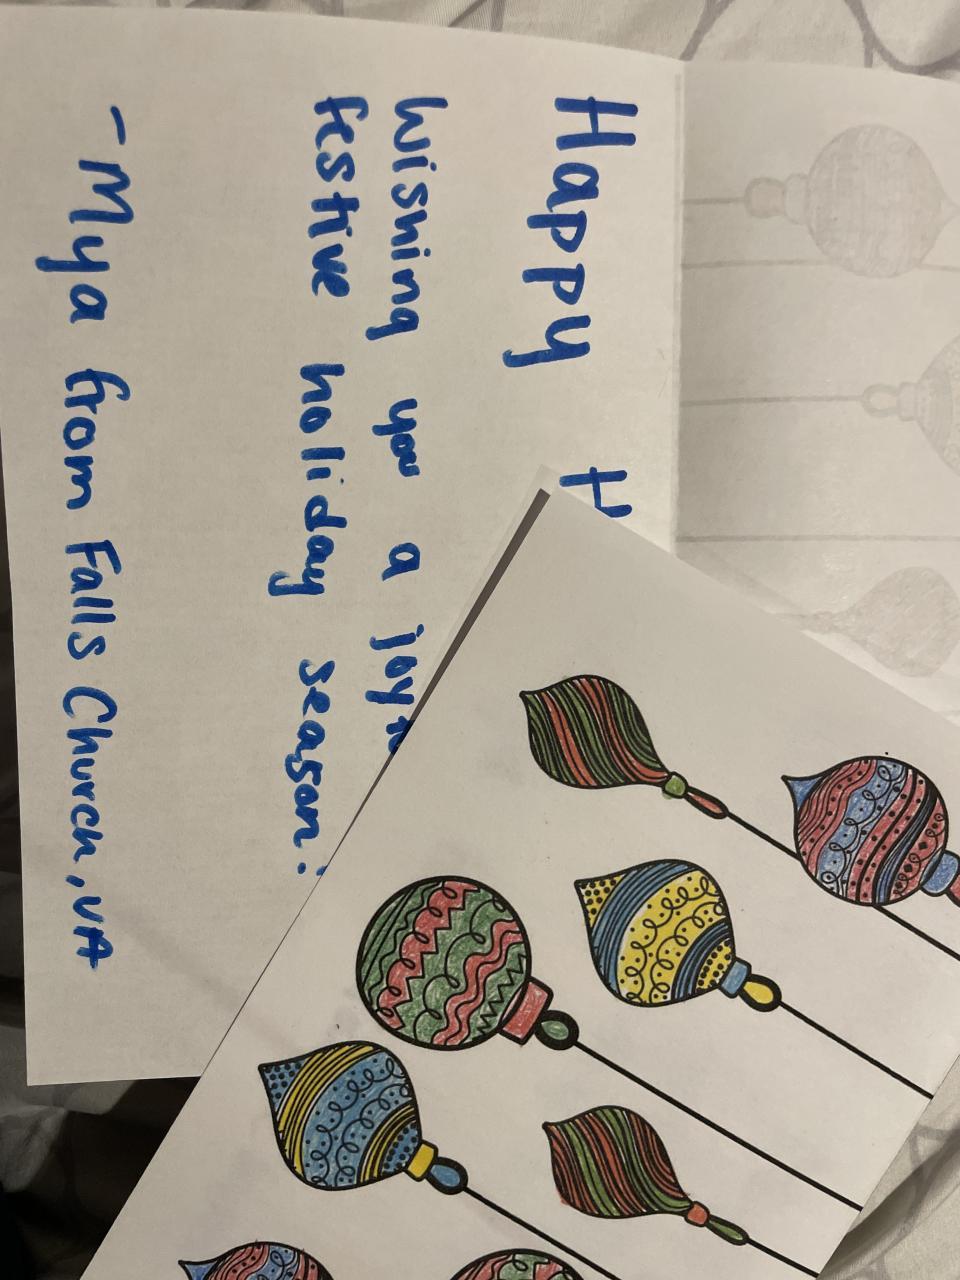 Happy H
Wishing you a joy
festive holiday season!
- Mya from Falls Church, VA